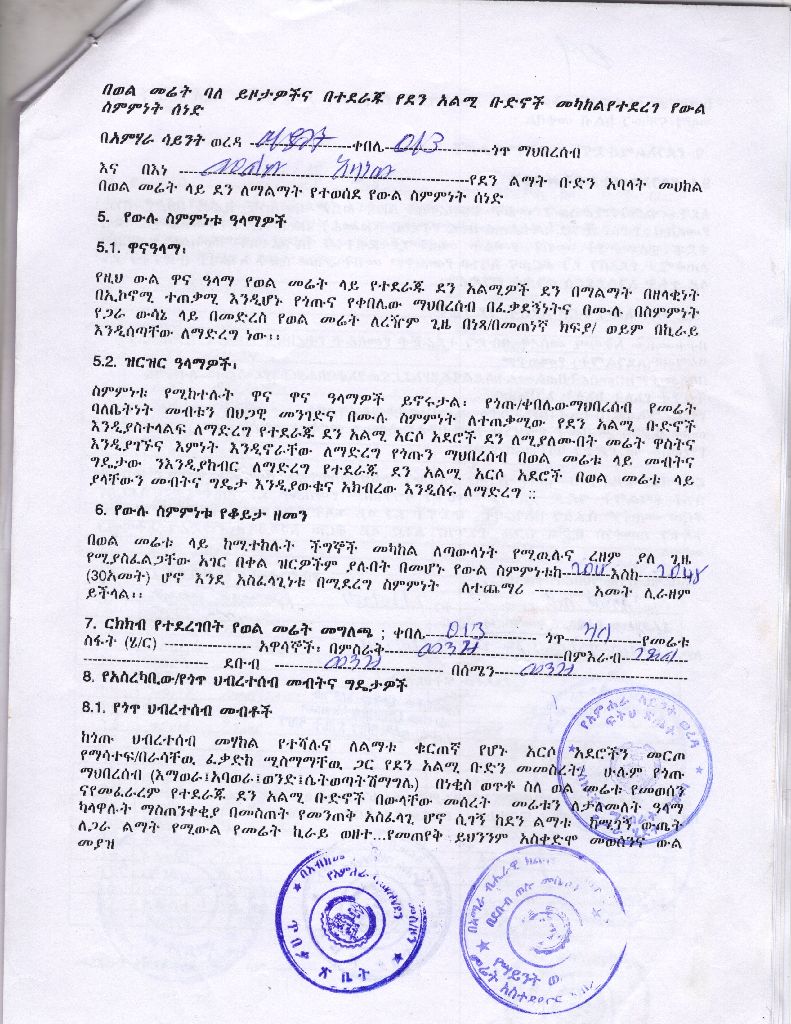 በወል መሬት ባለ ይዞታዎችና በተደራጁ የደን አልሚ ቡድኖች መካከልየተደረገ የውል
ስምምነት ሰነድ
በአምሃራ ሳይንት ወረዳ ቀበሌ 013 ጎጥ ማህበረሰብ
እና በእነ የደን ልማት ቡድን አባላት መሀከል
በወል መሬት ላይ ደን ለማልማት የተወሰደ የውል ስምምነት ሰነድ
5. የውሉ ስምምነቱ ዓላማዎች
5.1. ዋናዓላማ፡
የዚህ ውል ዋና ዓላማ የወል መሬት ላይ የተደራጁ ደን አልሚዎች ደን በማልማት በዘላቂነት
በኢኮኖሚ ተጠቃሚ እንዲሆኑ የጎጡና የቀበሌው ማህበረሰብ በፈቃደኝነትና በሙሉ በስምምነት
የጋራ ውሳኔ ላይ በመድረስ የወል መሬት ለረዥም ጊዜ በነጻ/በመጠነኛ ክፍያ/ ወይም በኪራይ
እንዲሰጣቸው ለማድረግ ነው፡፡
5.2. ዝርዝር ዓላማዎች፡
ስምምነቱ የሚከተሉት ዋና ዋና ዓላማዎች ይኖሩታል፡ የጎጡ/ቀበሌውማህበረሰብ የመሬት
ባለቤትነት መብቱን በህጋዊ መንገድና በሙሉ ስምምነት ለተጠቃሚው የደን አልሚ ቡድኖች
እንዲያስተላልፍ ለማድረግ የተደራጁ ደን አልሚ አርሶ አደሮች ደን ለሚያለሙበት መሬት ዋስትና
እንዲያገኙና እምነት እንዲኖራቸው ለማድረግ የጎጡን ማህበረሰብ በወል መሬቱ ላይ መብትና
ግዴታው ንእንዲያከብር ለማድረግ የተደራጁ ደን አልሚ አርሶ አደሮች በወል መሬቱ ላይ
ያላቸውን መብትና ግዴታ እንዲያውቁና አክብረው እንዲሰሩ ለማድረግ ::
6. የውሉ ስምምነቱ የቆይታ ዘመን
በወል መሬቱ ላይ ከሚተከሉት ችግኞች መካከል ለጣውላነት የሚዉሉና ረዘም ያለ ጊዜ
የሚያስፈልጋቸው አገር በቀል ዝርዎችም ያሉበት በመሆኑ የውል ስምምነቱከ እስከ 2048
(30አመት) ሆኖ እንደ አስፈላጊነቱ በሚደረግ ስምምነት ለተጨማሪ ---------- አመት ሊራዘም
ይችላል፡፡
7. ርክክብ የተደረገበት የወል መሬት መግለጫ ; ቀበሌ 013 ጎጥ የመሬቱ
ስፋት (ሄ/ር) ---------------- አዋሳኞች፡ በምስራቅ በምእራብ
ደቡብ በሰሜን
8. የአስረካቢው/የጎጥ ህብረተሰብ መብትና ግዴታዎች
8.1. የጎጥ ህብረተሰብ መብቶች
ከጎጡ ህብረተሰብ መሃከል የተሻሉና ለልማቱ ቁርጠኛ የሆኑ አርሶ አደሮችን መርጦ
የማሳተፍ/በራሳቸዉ ፈቃድከ ሚስማማቸዉ ጋር የደን አልሚ ቡድን መመስረት/ ሁሉም የጎጡ
ማህበረሰብ (እማወራ፤አባወራ፤ወንድ፤ሴትወጣትሽማግሌ) በነቂስ ወጥቶ ስለ ወል መሬቱ የመወሰን
ናየመፈራረም የተደራጁ ደን አልሚ ቡድኖች በውላቸው መሰረት መሬቱን ለታለመለት ዓላማ
ካላዋሉት ማስጠንቀቂያ በመስጠት የመንጠቅ አስፈላጊ ሆኖ ሲገኝ ከደን ልማቱ ከሚገኝ ውጤት
ለጋራ ልማት የሚውል የመሬት ኪራይ ወዘተ...የመጠየቅ ይህንንም አስቀድሞ መወሰንና ውል
መያዝ
የአምሐራ ሳይንት ወረዳ
ፍትህ ጽ/ቤት
ጥበቃ ጽ ቤት